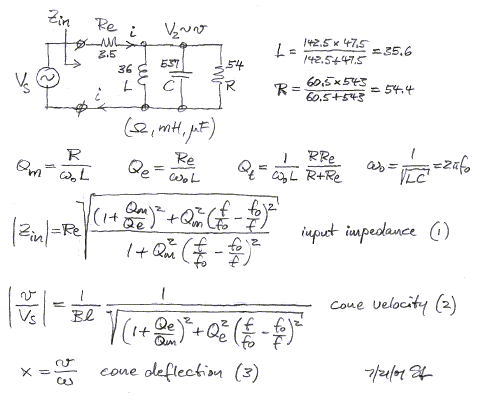 Zin Re i V2~v
8.5
Vs 36 L 537 C 54 R
i
(Ω, mH, μF)
L = (142.5 × 47.5)/(142.5 + 47.5) = 35.6
R = (60.5 × 543)/(60.5 + 543) = 54.4
Qm = R/(ω₀L) Qe = Re/(ω₀L) Qt = (1/(ω₀L)) (RRe/(R+Re)) ω₀ = 1/√(LC) = 2πf₀
|Zin| = Re √(((1 + Qm/Qe)² + Qm² (f/f₀ − f₀/f)²)/(1 + Qm² (f/f₀ − f₀/f)²)) input impedance (1)
|v/Vs| = (1/Bl) 1/√((1 + Qe/Qm)² + Qe² (f/f₀ − f₀/f)²) cone velocity (2)
x = v/ω cone deflection (3)